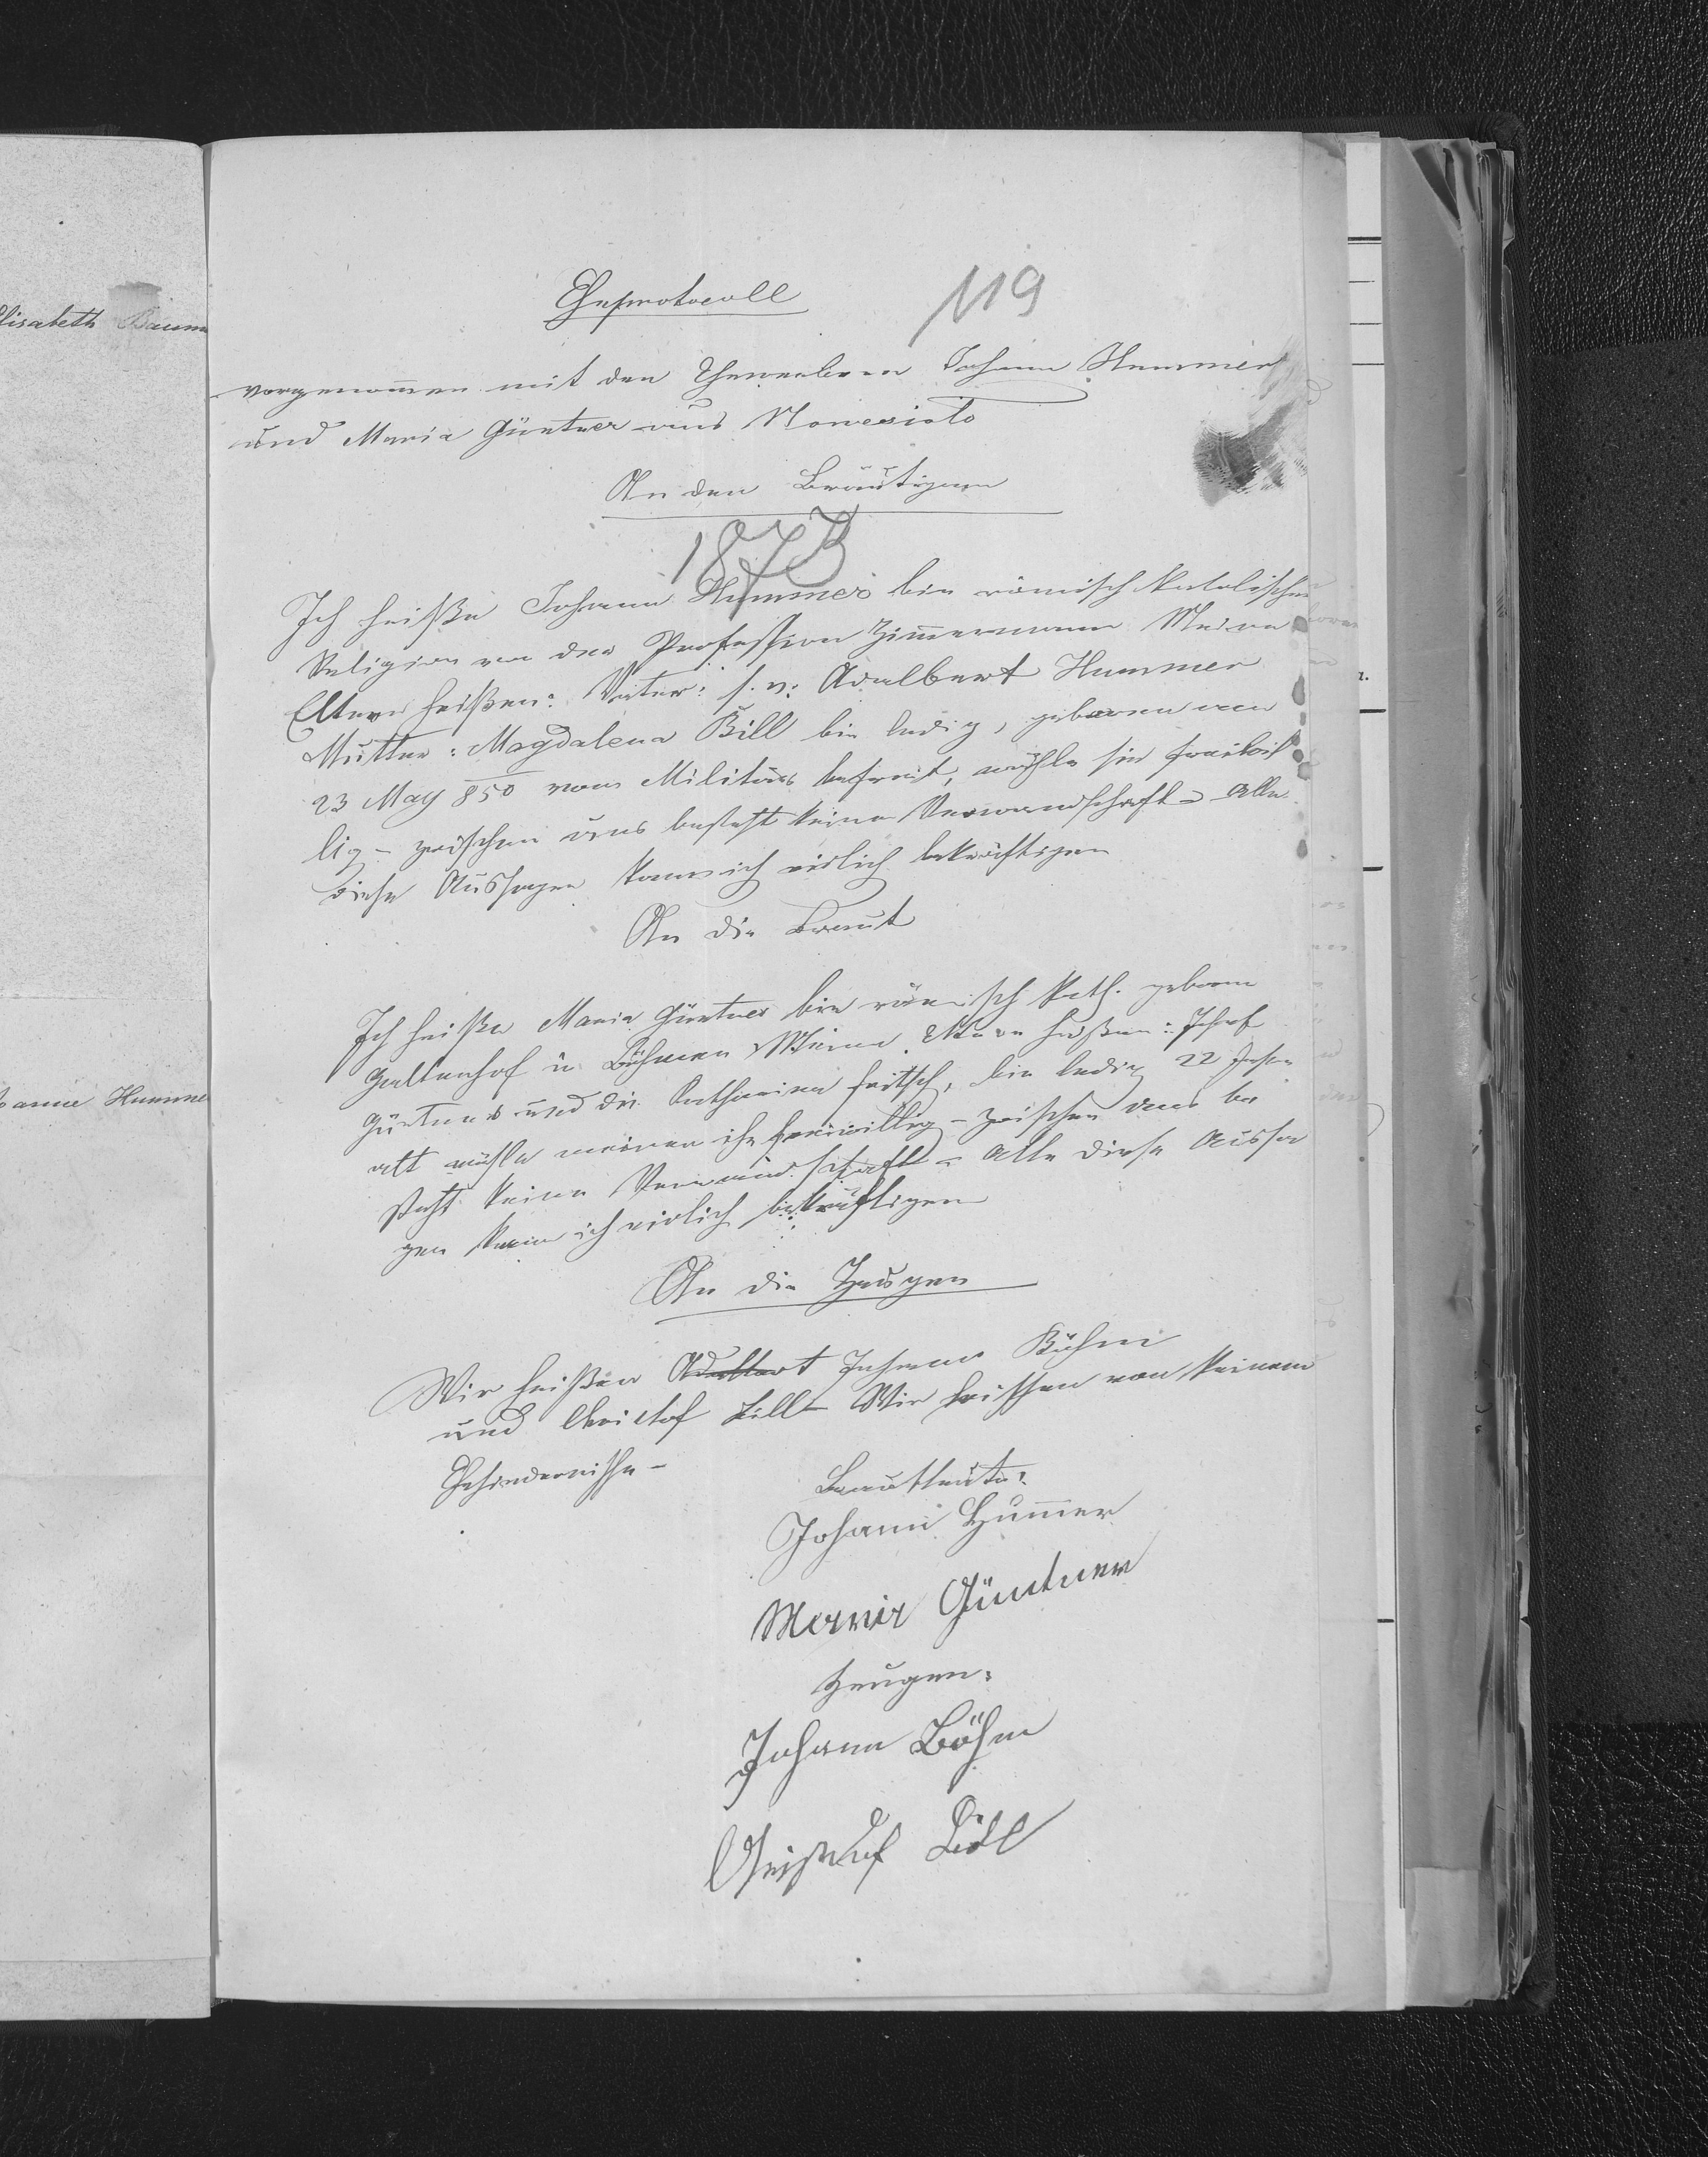 Elisabeth Baum
oanne Humme
Eheprotocoll
119
vorgenom̅en mit den Ehewerbern Johann Hummer
und Maria Güntner aus Moneasioto
An den Bräutigam
1873
Ich heiße Johann Hummer bin römisch Katolischer
Religion von der Profession Zim̅ermann Meine
Eltern heißen: Vater: s. v: Adalbert Hummer
Mutter: Magdalena Bill bin ledig, geboren am
23 May 850 vom Militär befreit, wähle sie freiwil
lig – zwischen uns besteht keine Verwandschaft – Alle
diese Aussagen kann ich eidlich bekräftigen
An die Braut
Ich heiße Maria Güntner bin römisch Kath. geboren
Galtenhof in Böhmen Meine Eltern heißen: Josef
Güntner und die Katharina Fritsch, bin ledig 22 Jahre
alt wähle meinen ihn freiwillig – zwischen uns be
steht keine Verwandschaft – Alle diese Aussa
gen kann ich eidlich bekräftigen
An die Zeugen
Wir heißen Adalbert Johann Böhm
und Christof Lill – Wir wissen von keinem
Ehehindernisse –
Brautleute:
Johann Hum̅er
Maria Güntner
Zeugen:
Johann Böhm
Christof Lill